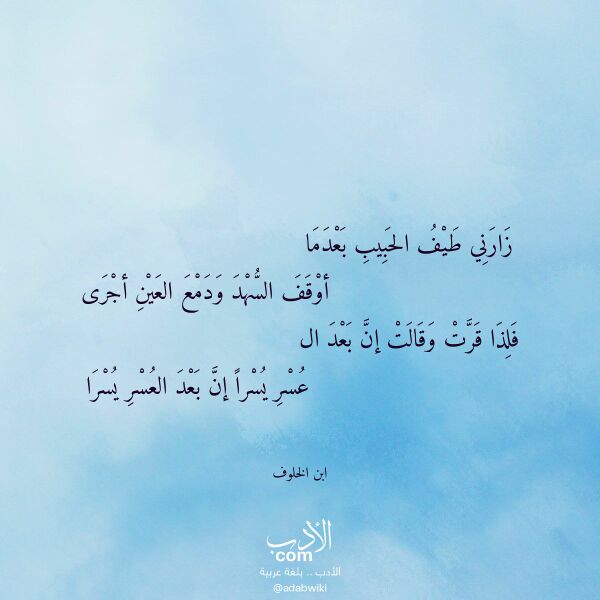 زَارَنِي طَيْفُ الحَبِيبِ بَعْدَمَا
أوْقَفَ السُّهْدَ وَدَمْعَ العَيْنِ أجْرَى
فَلِذَا قَرَّتْ وَقَالَتْ إنَّ بَعْدَ ال
عُسْرِ يُسْراً إنَّ بَعْدَ العُسْرِ يُسْرَا
ابن الخلوف
الأدب
com
الأدب .. بلغة عربية
@adabwiki